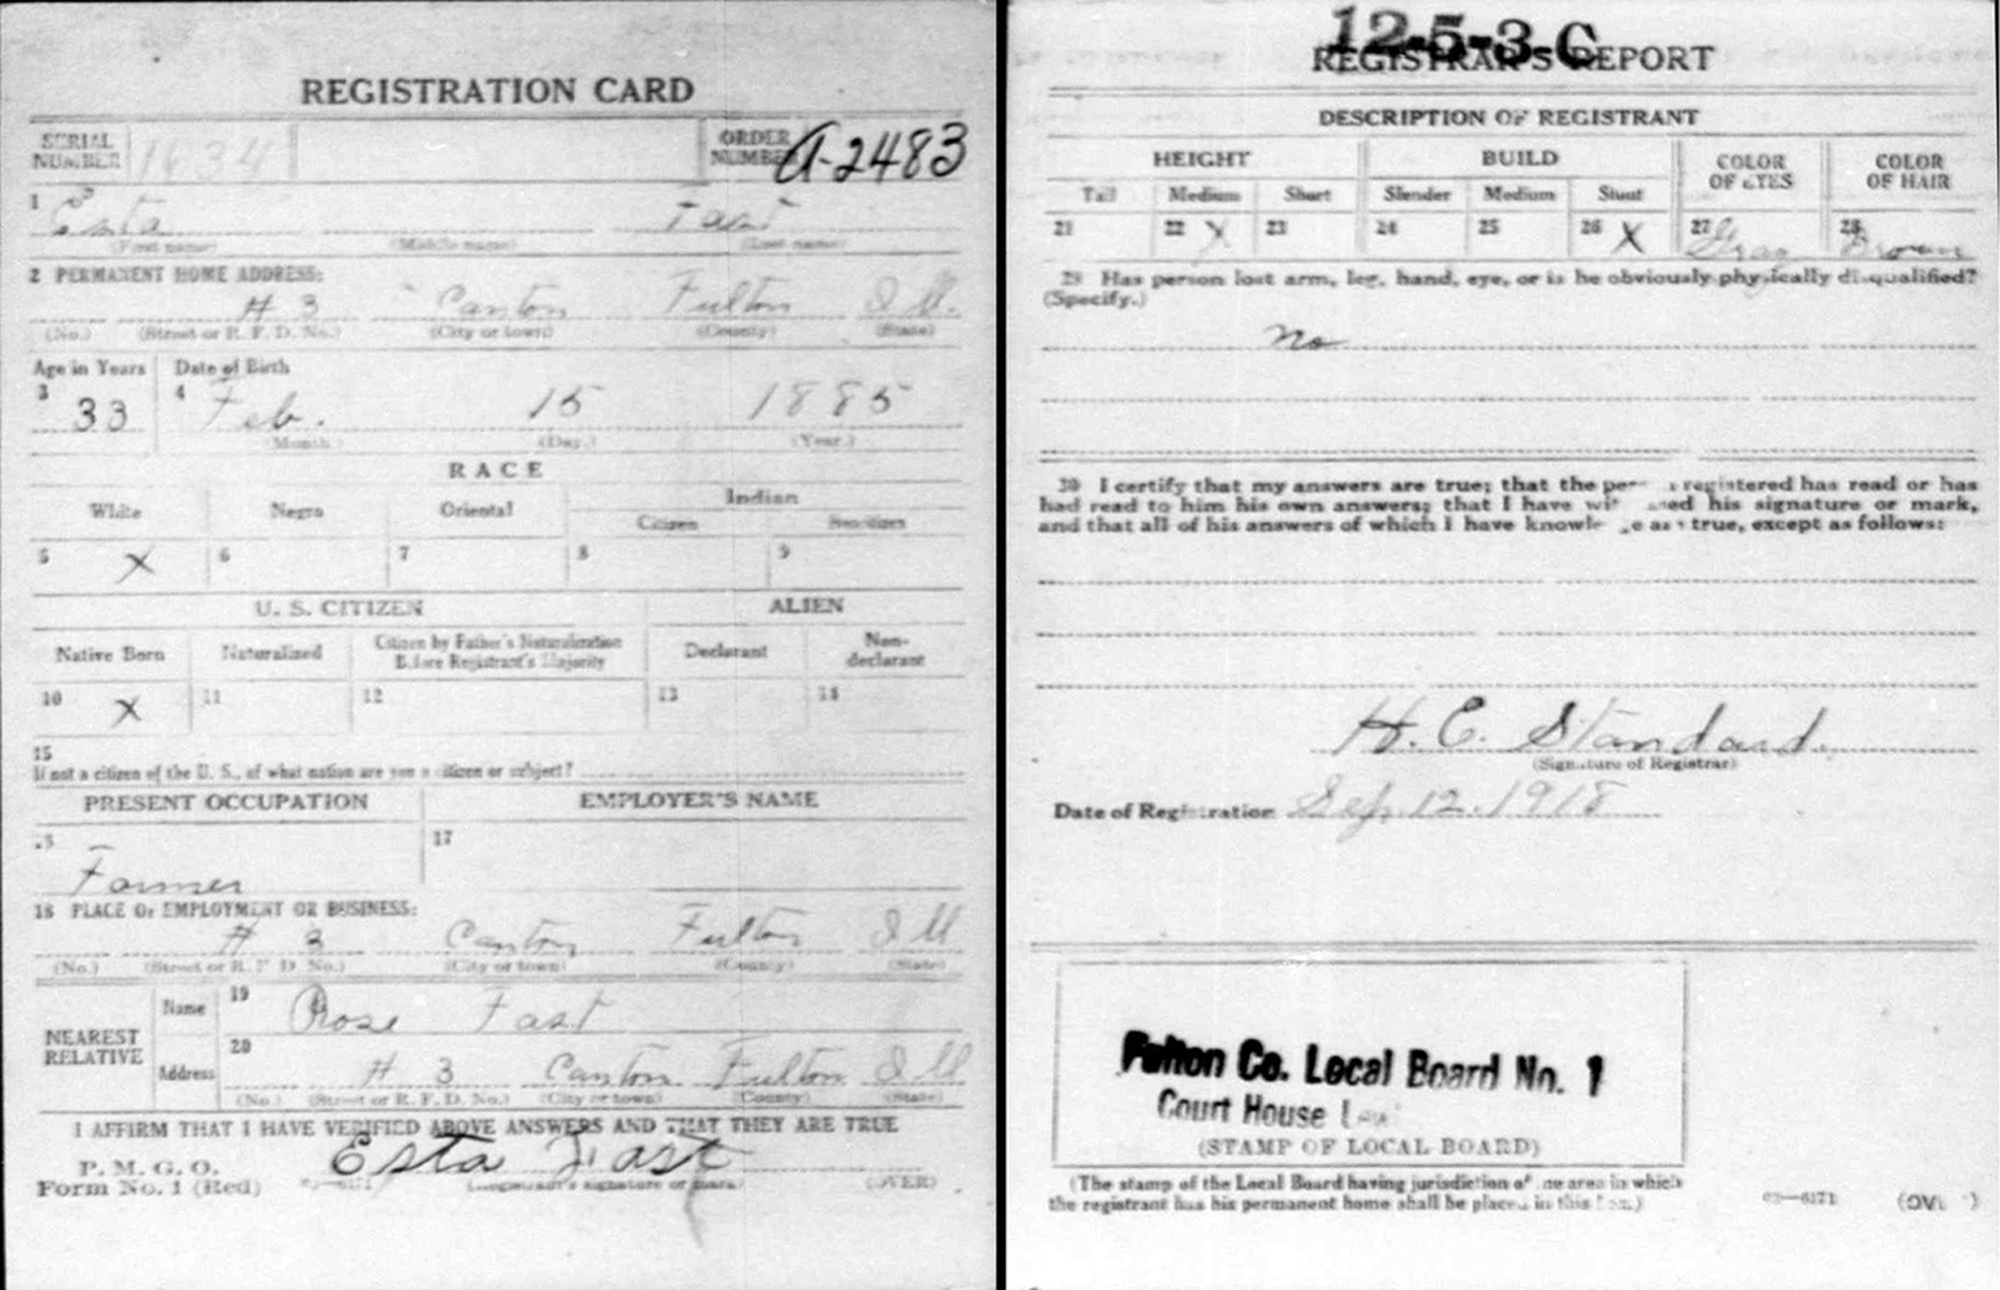 REGISTRATION CARD
SERIAL NUMBER 1634 ORDER NUMBER A-2483
1 Esta Fast
(First name) (Middle name) (Last name)
2 PERMANENT HOME ADDRESS:
# 3 Canton Fulton Ill.
(No.) (Street or R. F. D. No.) (City or town) (County) (State)
Age in Years Date of Birth
3 33 4 Feb. 15 1885
(Month.) (Day.) (Year.)
RACE
White Negro Oriental Indian
Citizen Noncitizen
5 X 6 7 8 9
U. S. CITIZEN ALIEN
Native Born Naturalized Citizen by Father's Naturalization Before Registrant's Majority Declarant Non-declarant
10 X 11 12 13 14
15
If not a citizen of the U. S., of what nation are you a citizen or subject?
PRESENT OCCUPATION EMPLOYER'S NAME
17
Farmer
18 PLACE OF EMPLOYMENT OR BUSINESS:
# 3 Canton Fulton Ill
(No.) (Street or R. F. D. No.) (City or town) (County) (State)
NEAREST RELATIVE
Name 19 Rose Fast
Address 20 # 3 Canton Fulton Ill
(No.) (Street or R. F. D. No.) (City or town) (County) (State)
I AFFIRM THAT I HAVE VERIFIED ABOVE ANSWERS AND THAT THEY ARE TRUE
P. M. G. O.
Form No. 1 (Red) Esta Fast
(Registrant's signature or mark) (OVER)
12-5-3-C
REGISTRAR'S REPORT
DESCRIPTION OF REGISTRANT
HEIGHT BUILD COLOR OF EYES COLOR OF HAIR
Tall Medium Short Slender Medium Stout
21 22 X 23 24 25 26 X 27 Gray 28 Brown
29 Has person lost arm, leg, hand, eye, or is he obviously physically disqualified?
(Specify.)
no
30 I certify that my answers are true; that the registered has read or has
had read to him his own answers; that I have his signature or mark,
and that all of his answers of which I have true, except as follows:
H. C. Standard.
(Signature of Registrar)
Date of Registration Sep. 12. 1918
Fulton Co. Local Board No. 1
Court House
(STAMP OF LOCAL BOARD)
(The stamp of the Local Board having jurisdiction of area in which
the registrant has his permanent home shall be placed in this box.)
03—6171